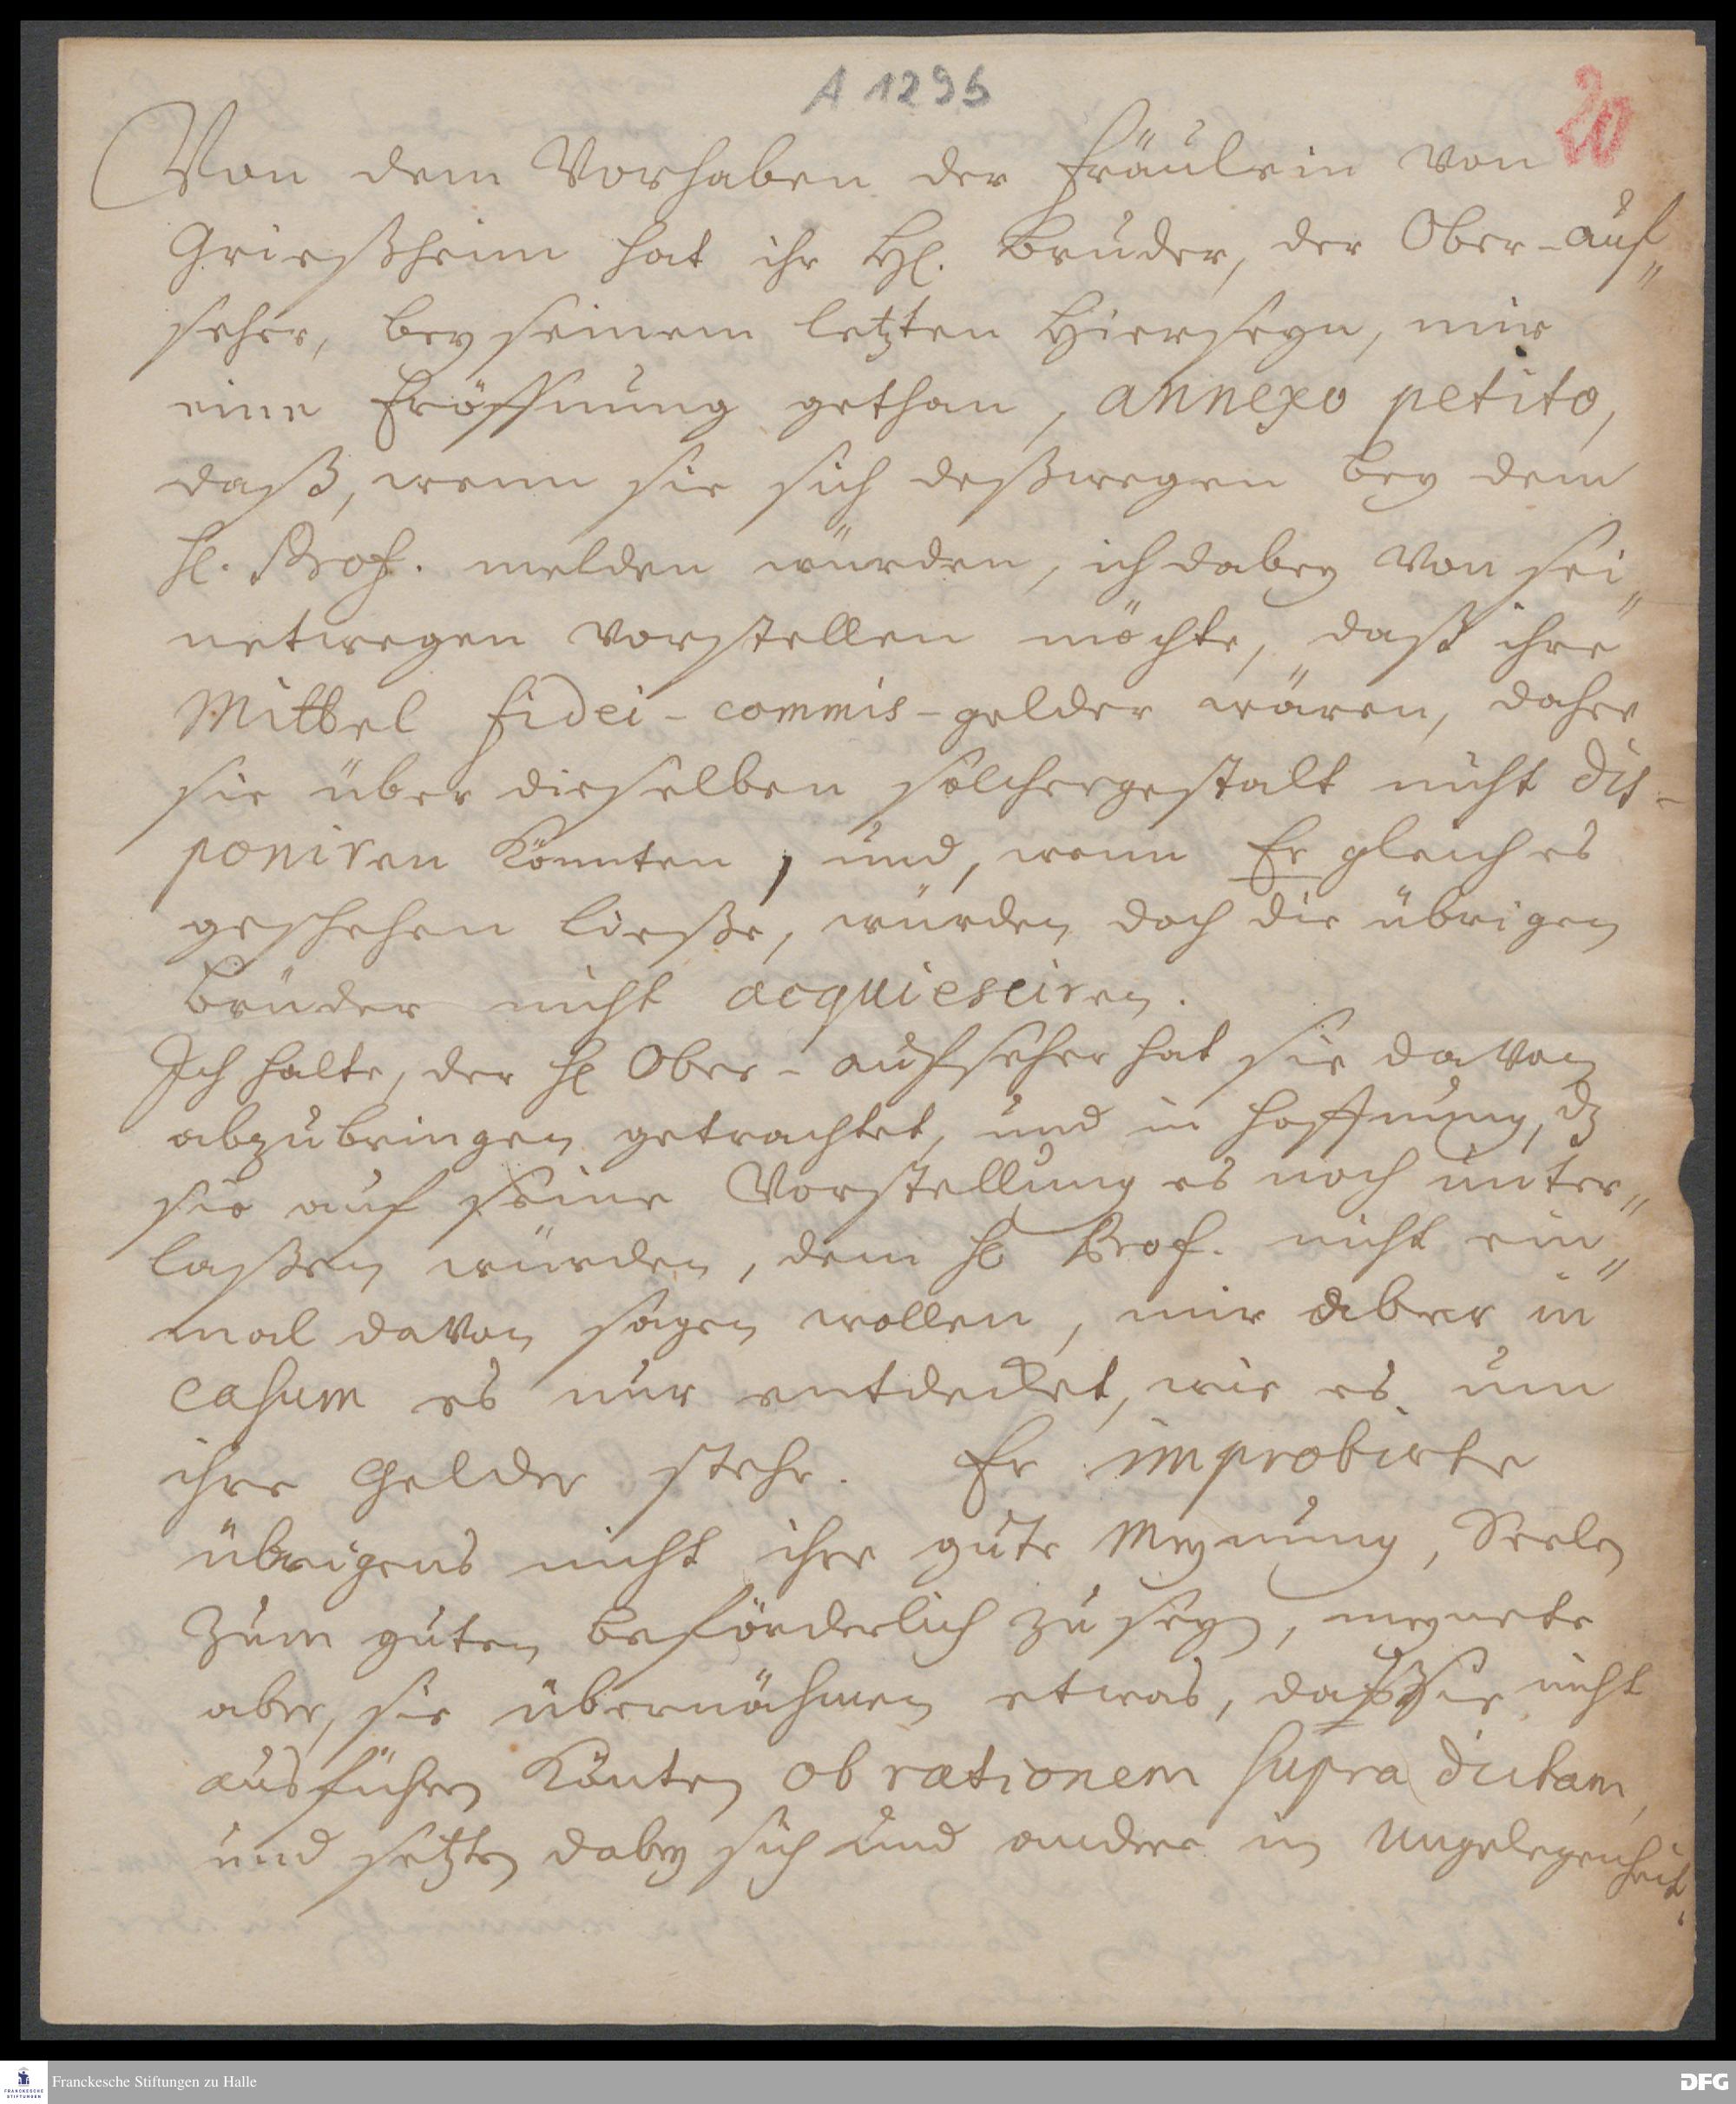 A 1295
20
Von dem Vorhaben der Fräulein von
Grießheim hat ihr H. Bruder, der Ober-auf„
seher, bey seinem letzten Hierseyn, mir
eine Eröffnung gethan, annexo petito,
daß, wenn sie sich deßwegen bey dem
H. Prof. melden würden, ich dabey von sei„
netwegen vorstellen möchte, daß ihre
Mittel fidei-commis-gelder wären, daher
sie über dieselben solchergestalt nicht dis-
poniren könnten, und, wenn Er gleich es
geschehen ließe, würden doch die übrigen
Brüder nicht acquiesciren.
Ich halte, der H Ober-aufseher hat sie davon
abzubringen getrachtet, und in hoffnung, dz
sie auf seine Vorstellung es noch unter„
laßen würden, dem H Prof. nicht ein„
mal davon sagen wollen, mir aber in
casum es nur entdecket, wie es um
ihre Gelder stehe. Er improbirte
übrigens nicht ihre gute Meynung, Seelen
zum guten beförderlich zu seyn, meynete
aber, sie übernähmen etwas, daß sie nicht
ausführen könten ob rationem supra dictam,
und setzten dabey sich und andere in Ungelegenheit.
Franckesche Stiftungen zu Halle
FRANCKESCHE
STIFTUNGEN
DFG